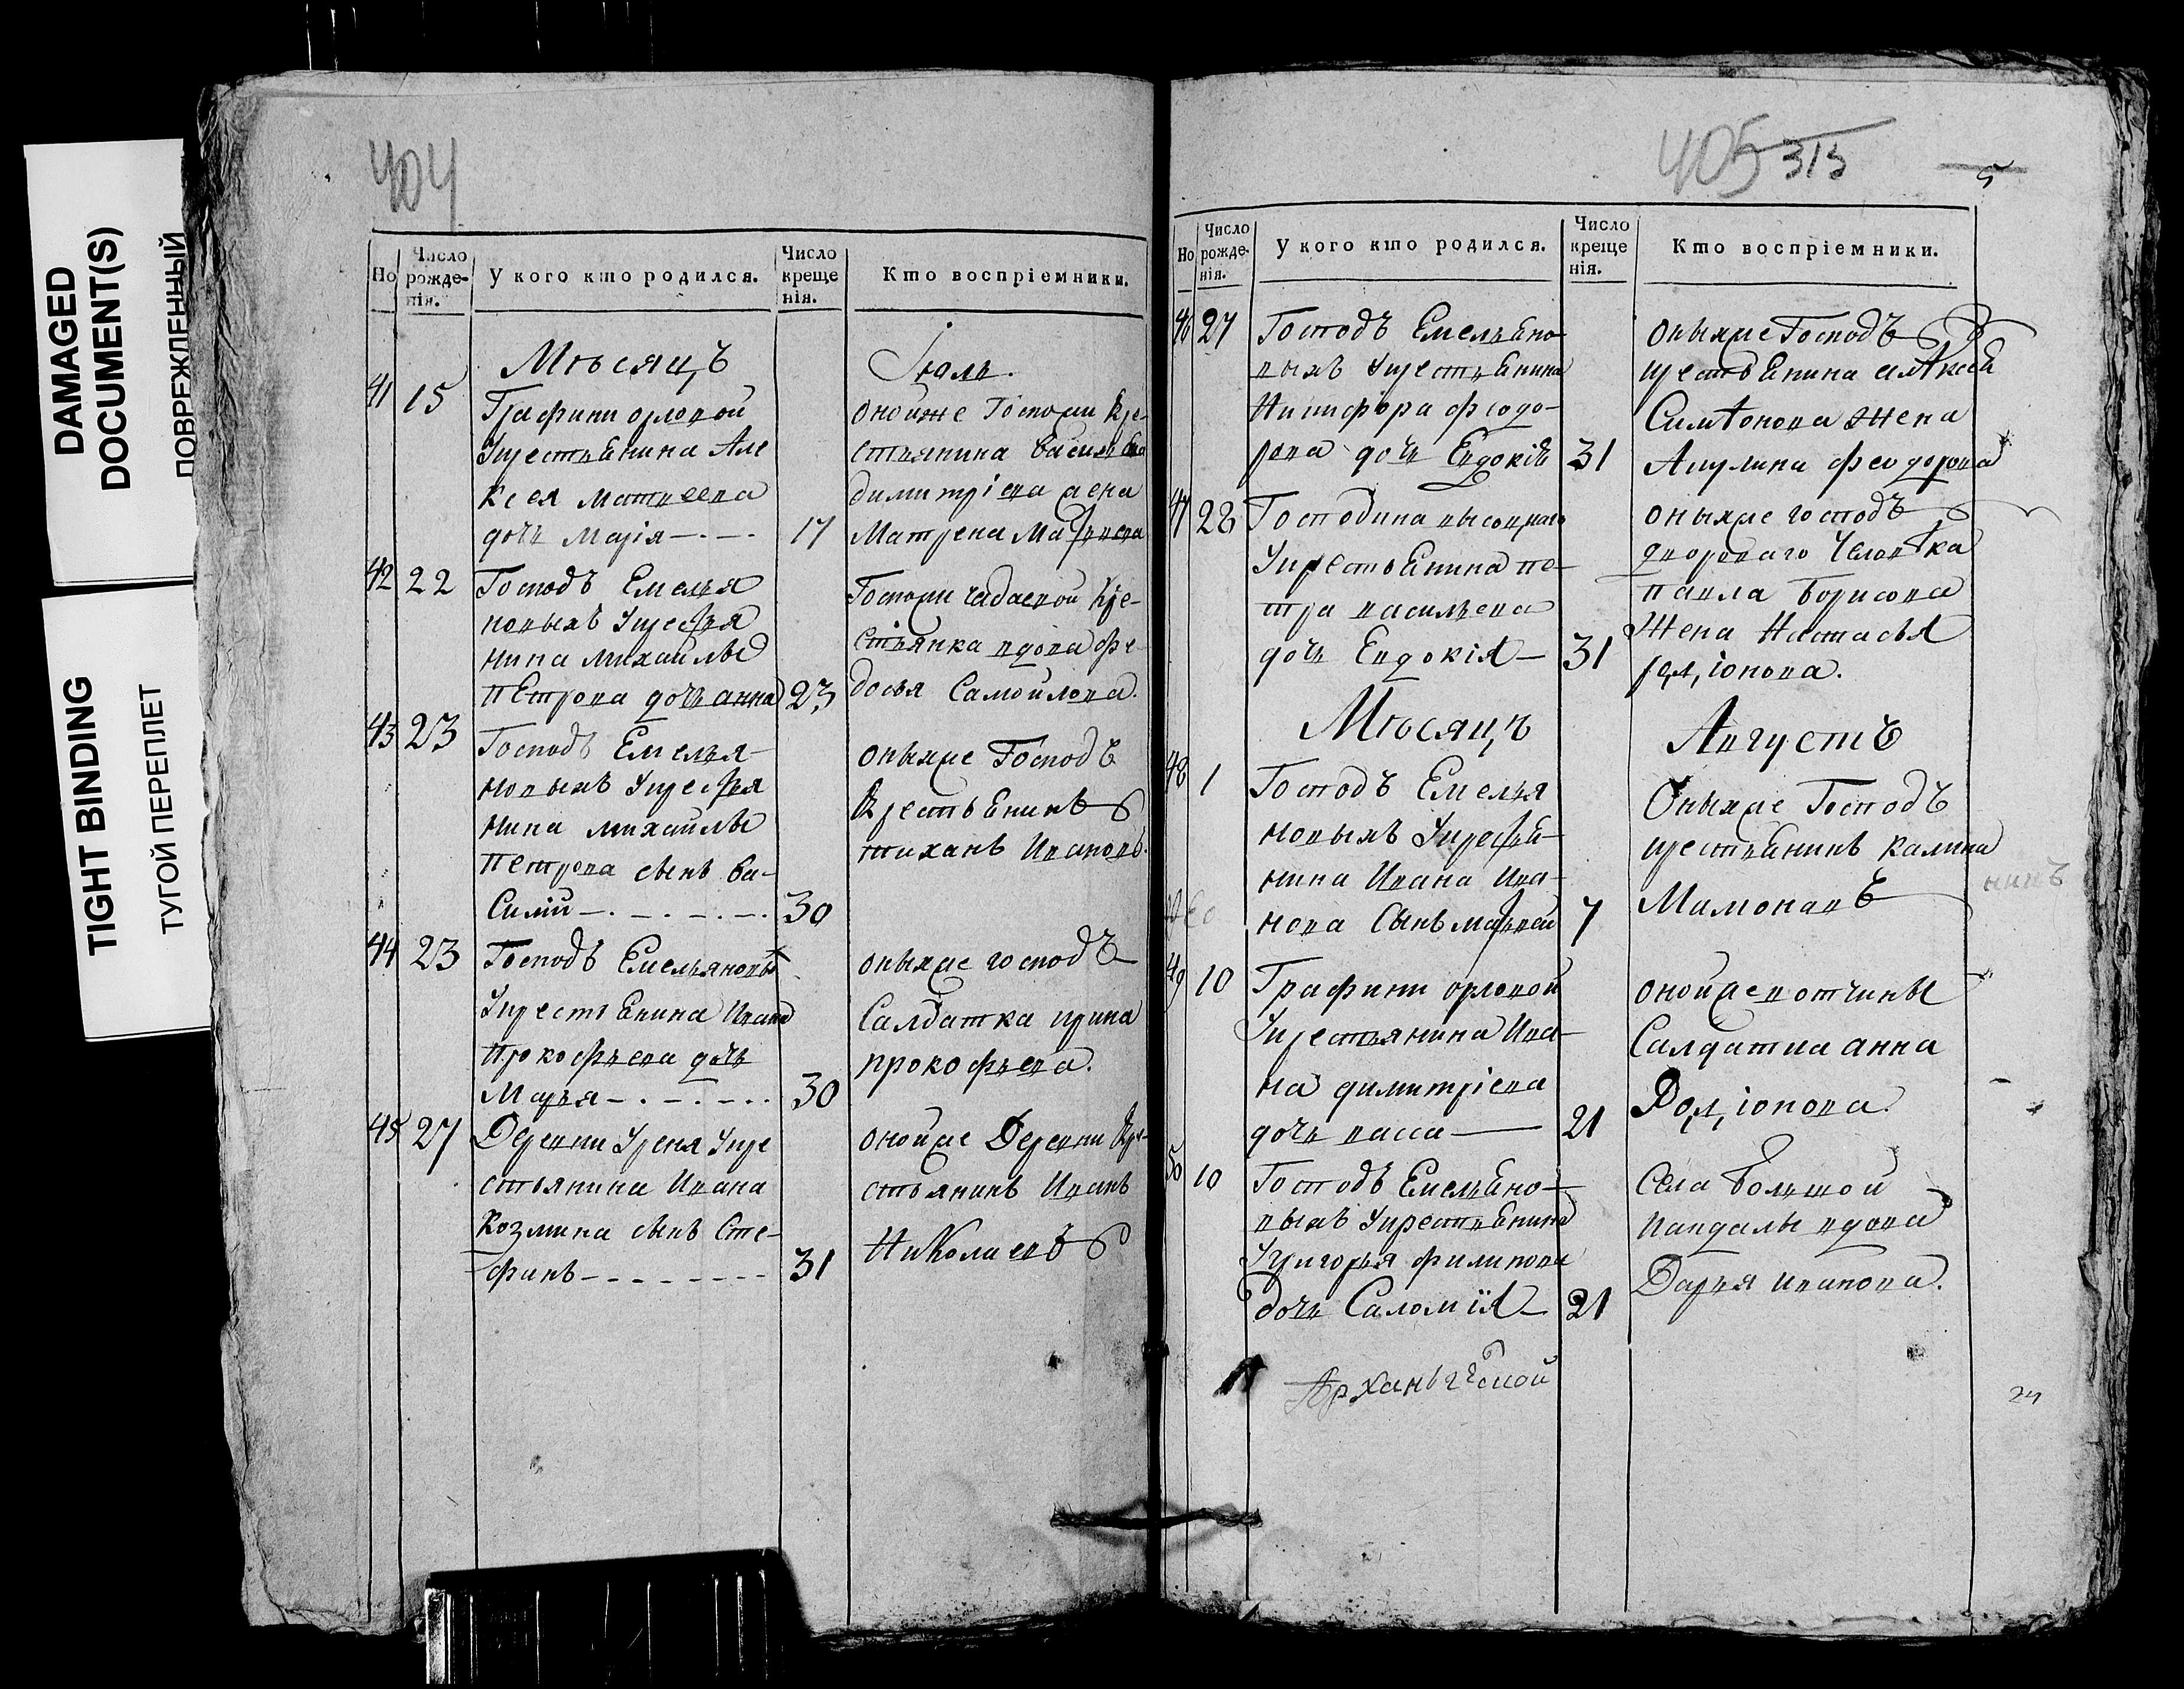 DAMAGED
DOCUMENT(S)
ПОВРЕЖДЕННЫЙ
TIGHT BINDING
ТУГОЙ ПЕРЕПЛЕТ
404
Но
Число рожде-нія.
У кого кто родился.
Число креще нія.
Кто воспріемники.
Мѣсяцъ
Іюль.
41 15 Графини орловой
Укрестьѣнина Але
ксея матвеева
дочь Марія 17
оной же Госпожи Кре-
стьянина Василья
димитріева жена
Матрена Матвеева
42 22 Господъ Емелья
новыхъ Укрестья
нина михайлы
пЕтрова дочь анна 23
Госпожи чадаевой Кре-
стьянка вдова фе-
досья Самойлова.
43 23 Господъ Емелья-
новыхъ Укрестья
нина михайлы
петрова сынъ Ва-
Силій 30
оныхже Господъ
Крестьѣнинъ
тиханъ Ивановъ.
44 23 Господъ Емельяновых
Укрестьѣнина Ивана
Прокофьева дочь
Марья 30
оныхже господъ
Салдатка ирина
прокофьева.
45 27 Деревни Уреня Укре
стьянина Ивана
Козмина сынъ Сте-
финъ 31
онойже Деревни Кре-
стьянинъ Иванъ
Николаевъ
405 313
5
Но
Число рожде-нія.
У кого кто родился.
Число креще нія.
Кто воспріемники.
46 27 Господъ Емельѣно-
выхъ Укрестьѣнина
Никифора феодо-
рова дочь Евдокія 31
оныхже Господъ
крестьѣнина алѣксѣя
Симѣонова Жена
Акулина феодорова
47 28 Господина высоцкаго
Укрестьѣнина пе-
тра васильева
дочь Евдокія 31
оныхже господъ
двороваго Человѣка
павла Борисова
Жена Настасья
родіонова.
Мѣсяцъ
Августъ
48 1 Господъ Емелья
новыхъ Укрестьѣ-
нина Ивана Ива-
нова Сынъ матвей 7
Оныхже Господъ
крестьѣнинъ калина
Мамонавъ
нинъ
49 10 Графини орловой
Укрестьянина Ива-
на димитріева
дочь васса 21
онойже вотчины
Салдатка анна
Родіонова.
50 10 Господъ Емельѣно-
выхъ Укрестьѣнина
Григорья филипова
дочь Саломія 21
Села Большой
вдова
Дарья иванова.
24